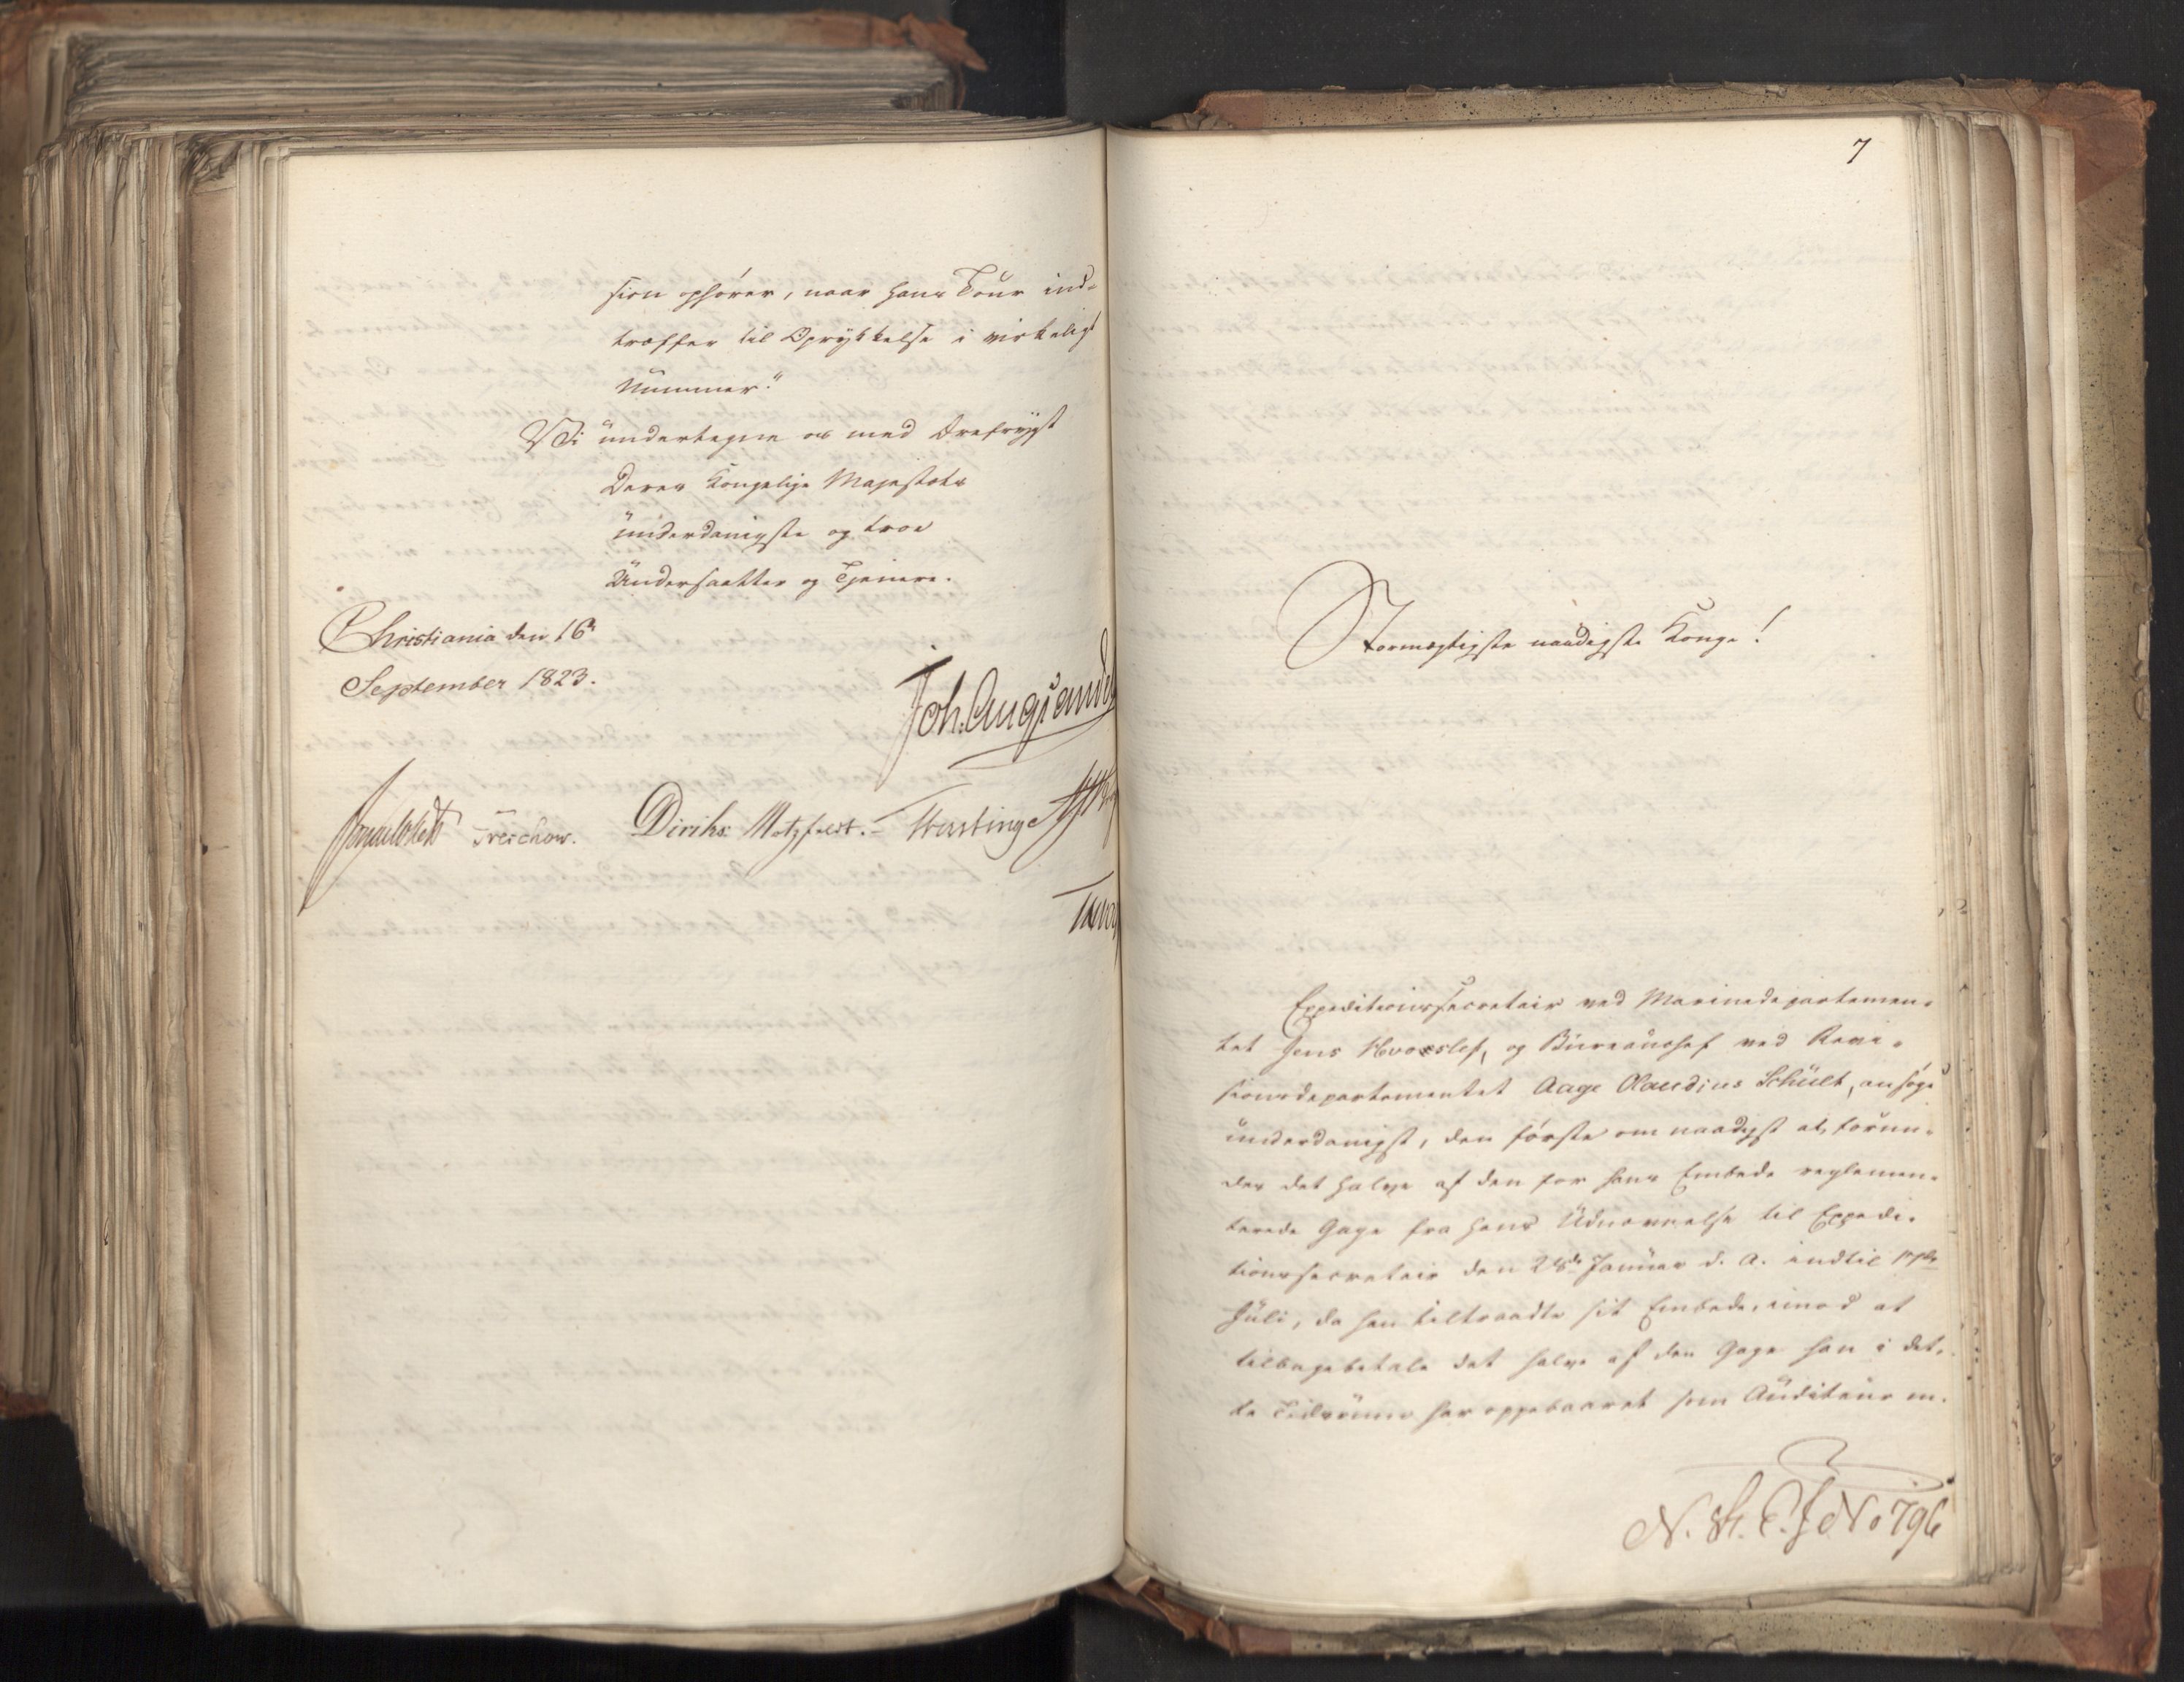 sion ophörer, naar hans Tour ind-
træffer til Oprykkelse i virkeligt
Nummer."
Vi undertegne os med Ærefrygt
Deres Kongelige Majestæts
underdanigste og troe
Undersaatter og Tjenere.
Christiania den 16
September 1823.
Joh. Aug. Sandels
Treschow. Diriks. Motzfeldt. Fasting
7
Stormægtigste naadigste Konge!
Expeditionssecretair ved Marinedepartemen-
tet Jens Hvoslef, og Bureauchef ved Revi-
sionsdepartementet Aage Claudius Schült, ansöge
underdanigst, den förste om naadigst at forun-
des det halve af den for hans Embede reglemen-
terede Gage fra hans Udnævnelse til Expedi-
tionssecretair den 28de Januar d. A. indtil
Juli, da han tiltraadte sit Embede, imod at
tilbagebetale det halve af den Gage han i det-
te Tidsrum har oppebaaret som Auditeur
N. St. E. J No 796